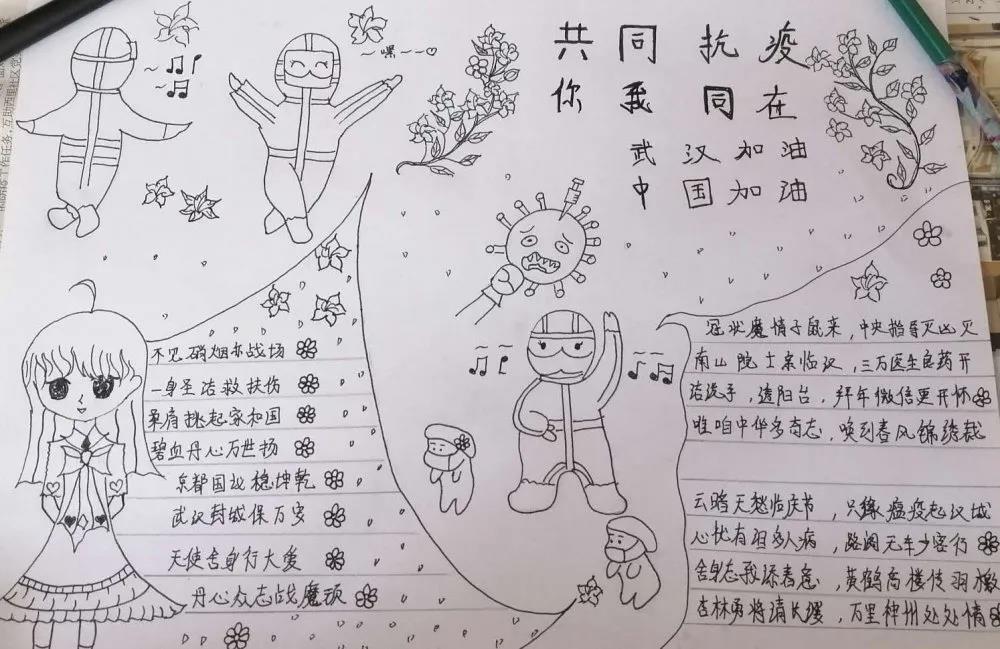 共同抗疫
你我同在
武汉加油
中国加油
~嘿~~
不见硝烟亦战场
一身圣洁救扶伤
肩挑起家和国
碧血丹心万世扬
京都国议稳坤乾
武汉封城保万安
天使舍身行大爱
丹心众志战魔顽
冠状魔情子鼠来,中央指导灭凶灭
南山院士亲临汉,三万医生良药开
洁洗手,透阳台,拜年微信更开怀
唯咱中华多奇志,唤到春风锦绣裁
云暗天愁临庆节,只缘瘟疫起汉城
心忧有泪多人病,路阔无车少客行
舍身志添春意,黄鹤高楼传羽
杏林勇将请长缨,万里神州处处情
工作任务,互助西里社区党